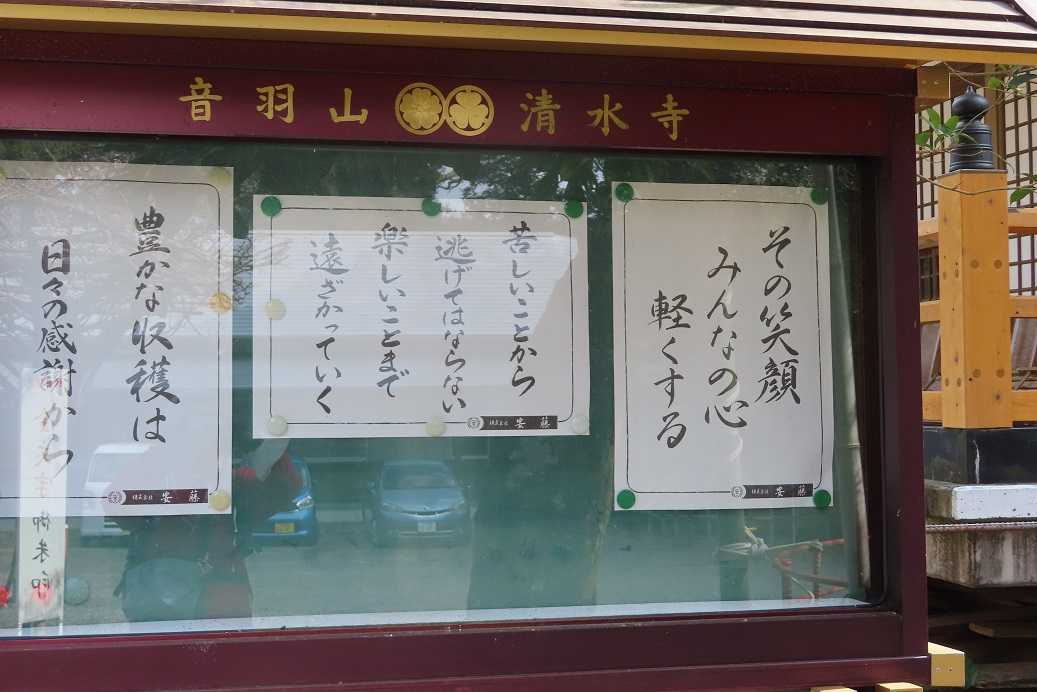 音羽山 清水寺
その笑顔
みんなの心
軽くする
株式会社 安藤
苦しいことから
逃げてはならない
楽しいことまで
遠ざかっていく
株式会社 安藤
豊かな収穫は
日々の感謝から
株式会社 安藤
御朱印